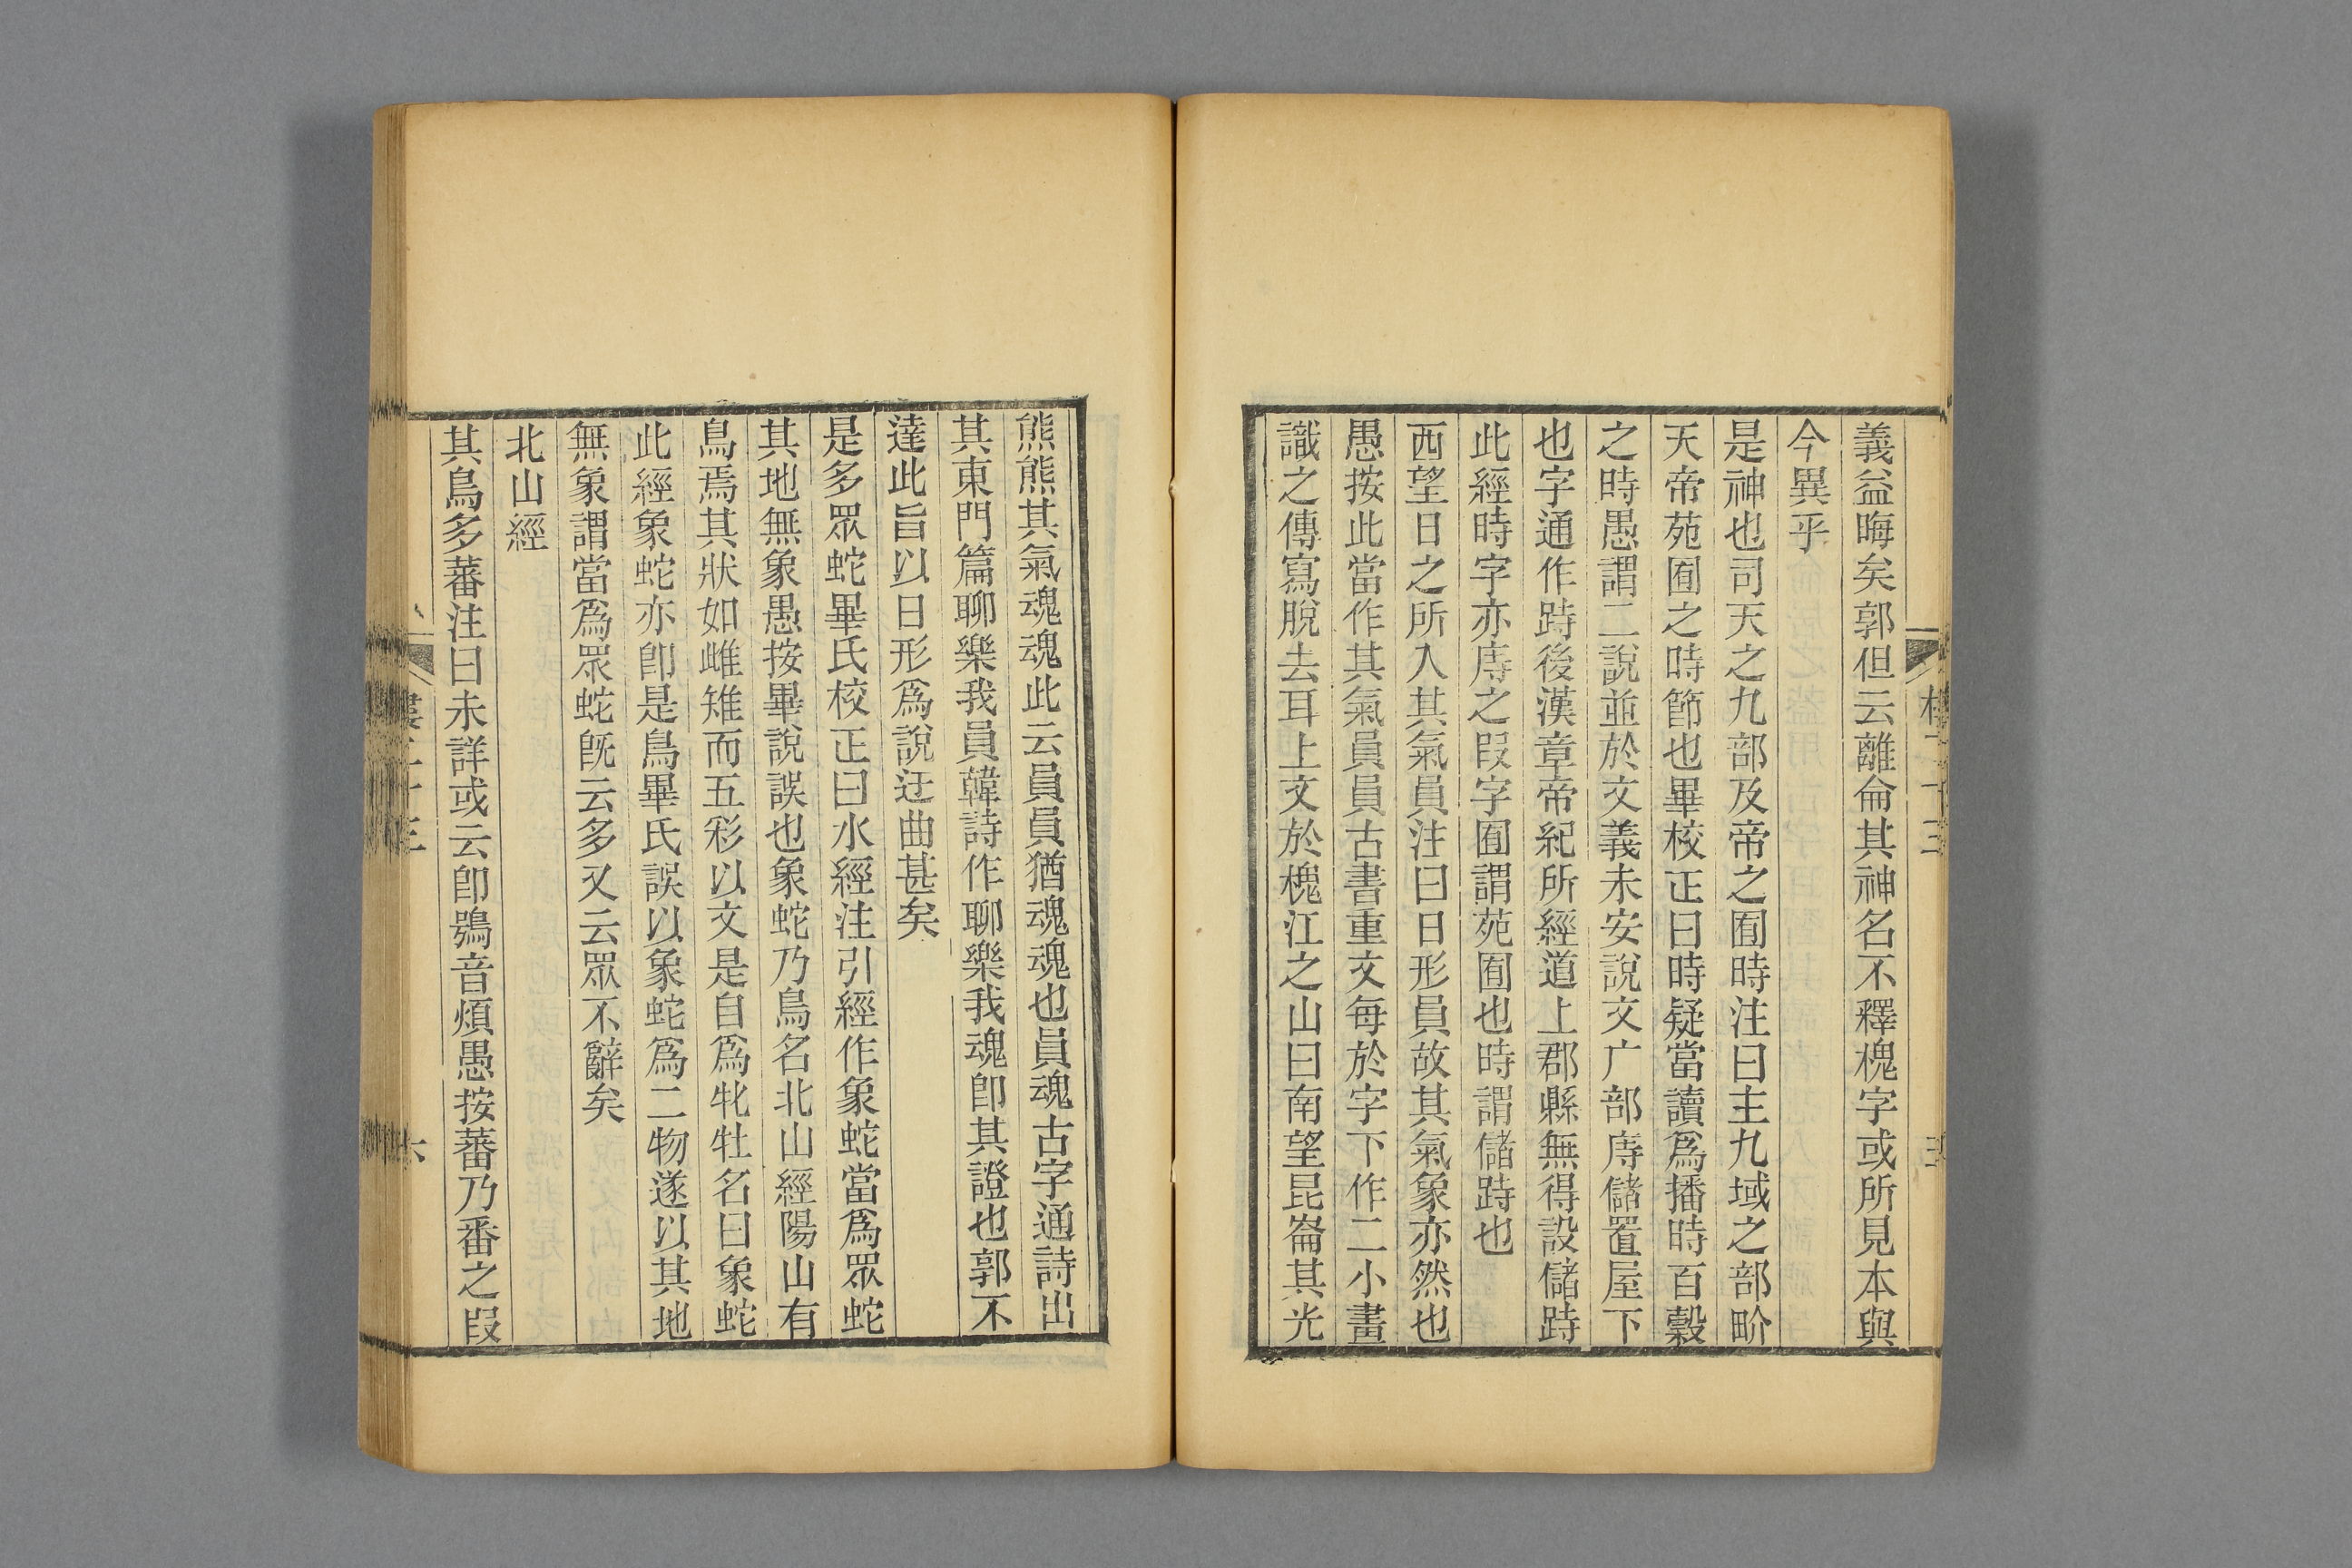 義益晦矣郭但云離侖其神名不釋槐字或所見本與
今異乎
是神也司天之九部及帝之囿時注曰主九域之部畍
天帝苑囿之時節也畢校正曰時疑當讀爲播時百穀
之時愚謂二說並於文義未安說文广部庤儲置屋下
也字通作跱後漢章帝紀所經道上郡縣無得設儲跱
此經時字亦庤之叚字囿謂苑囿也時謂儲跱也
西望日之所入其氣員注曰日形員故其氣象亦然也
愚按此當作其氣員員古書重文每於字下作二小畫
識之傳寫脫去耳上文於槐江之山曰南望昆崙其光
熊熊其氣魂魂此云員員猶魂魂也員魂古字通詩出
其東門篇聊樂我員韓詩作聊樂我魂卽其證也郭不
達此旨以日形爲說迂曲甚矣
是多眾蛇畢氏校正曰水經注引經作象蛇當爲眾蛇
其地無象愚按畢說誤也象蛇乃鳥名北山經陽山有
鳥焉其狀如雌雉而五彩以文是自爲牝牡名曰象蛇
此經象蛇亦卽是鳥畢氏誤以象蛇爲二物遂以其地
無象謂當爲眾蛇旣云多又云眾不辭矣
北山經
其鳥多蕃注曰未詳或云卽鴞音煩愚按蕃乃番之叚